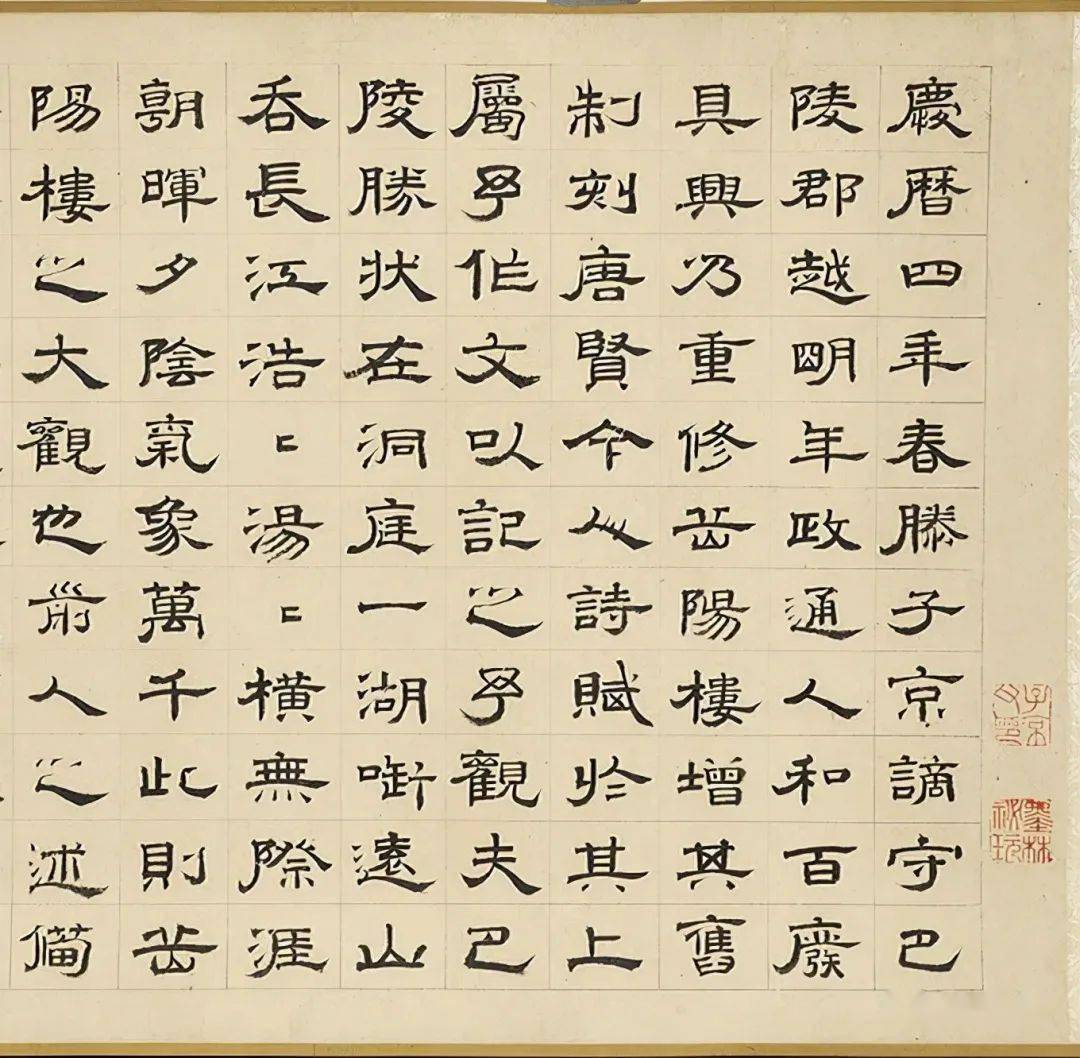 慶暦四年春滕子京謫守巴
陵郡越朙年政通人和百廢
具興乃重修岳陽樓增其舊
制刻唐賢今人詩賦於其上
屬予作文以記之予觀夫巴
陵勝狀在洞庭一湖啣遠山
吞長江浩〻湯〻橫無際涯
朝暉夕陰氣象萬千此則岳
陽樓之大觀也前人之述備
子京父印
墨林秘玩